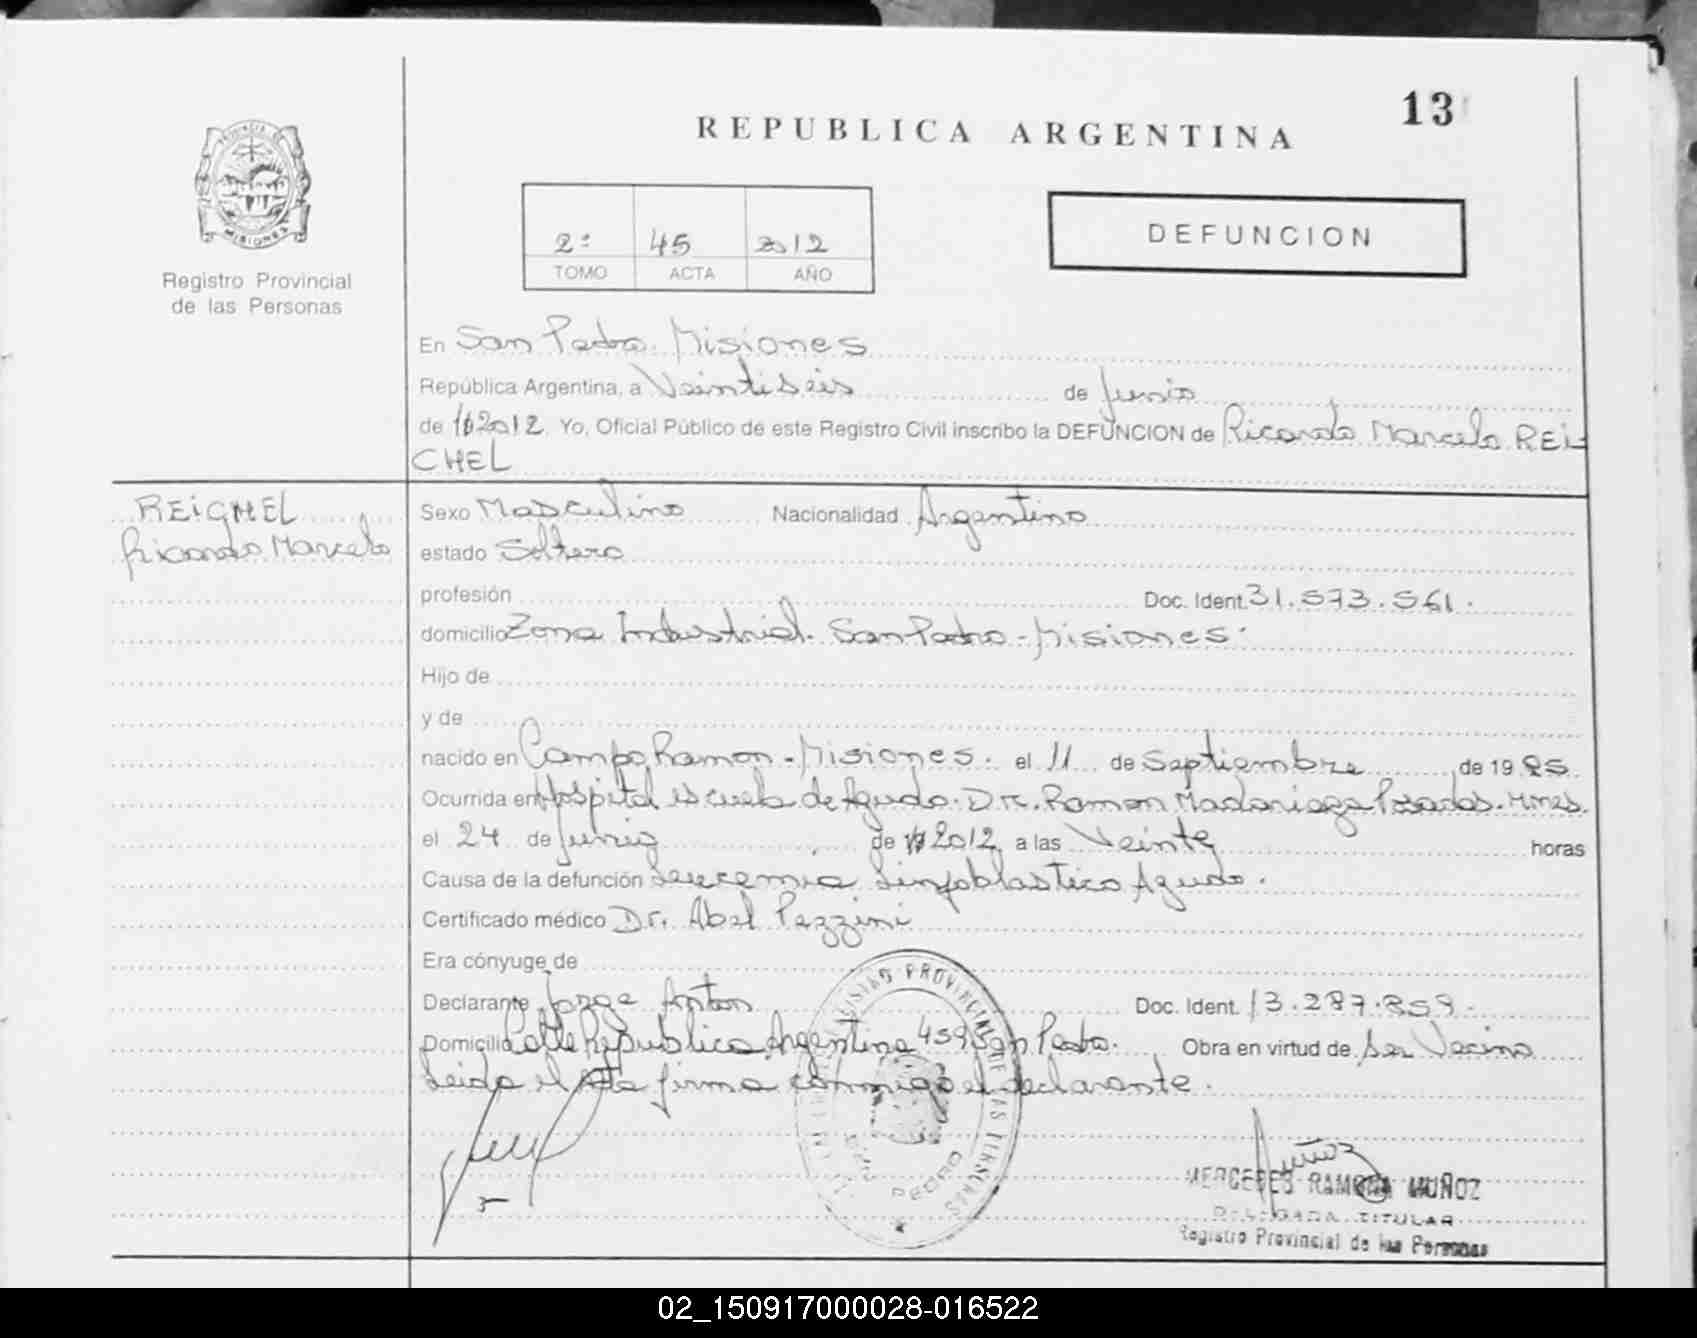 13
REPUBLICA ARGENTINA
PROVINCIA DE
MISIONES
Registro Provincial
de las Personas
2º 45 2012
TOMO ACTA AÑO
DEFUNCION
En San Pedro. Misiones
República Argentina, a Veintiseis de Junio
de 19 2012. Yo, Oficial Público de este Registro Civil inscribo la DEFUNCION de Ricardo Marcelo REI-
CHEL
REICHEL
Ricardo Marcelo
Sexo Masculino Nacionalidad Argentino
estado Soltero
profesión Doc. Ident. 31.573.561.
domicilio Zona Industrial. San Pedro - Misiones.
Hijo de
y de
nacido en Campo Ramon - Misiones. el 11 de Septiembre de 19 85.
Ocurrida en Hospital escuela de Agudo. Dr. Ramon Madariaga Posadas. Mnes.
el 24 de Junio de 19 2012 a las Veinte horas
Causa de la defunción Leucemia Linfoblastica Aguda.
Certificado médico Dr. Abel Pezzini
Era cónyuge de
Declarante Jorge Anton Doc. Ident. 13.287.859.
Domicilio Calle Republica Argentina 459 San Pedro. Obra en virtud de ser Vecino
Leida el Acta firma conmigo el declarante.
REGISTRO PROVINCIAL DE LAS PERSONAS
PEDRO
Muñoz
MERCEDES RAMONA MUÑOZ
DELEGADA TITULAR
Registro Provincial de las Personas
02_150917000028-016522